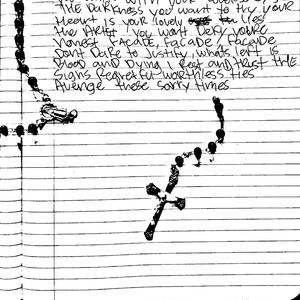 WITH YOUR
THE DARKNESS YOU WANT TO try your
Heart is your lovely lies
the You want Deny
Honest FACADE, FACADE, FACADE
Don't Dare to Justify, whats left is
Blood and Dying. Rest and trust the
Signs regretful worthless ties
Avenge these sorry times